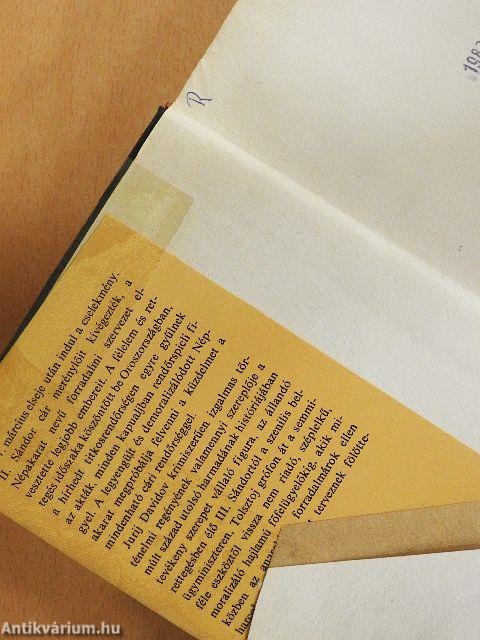 R
198
március elseje után indul a cselekmény.
II. Sándor cár merénylőit kivégezték, a
Népakarat nevű forradalmi szervezet el-
vesztette legjobb embereit. A félelem és ret-
tegés időszaka köszöntött be Oroszországban,
a hírhedt titkosrendőrségen egyre gyűlnek
az akták, minden kapualjban rendőrspicli fi-
gyel. A legyengült és demoralizálódott Nép-
akarat megpróbálja felvenni a küzdelmet a
mindenható cári rendőrséggel.
Jurij Davidov krimiszerűen izgalmas tör-
ténelmi regényének valamennyi szereplője a
múlt század utolsó harmadának históriájában
tevékeny szerepet vállaló figura, az állandó
rettegésben élő III. Sándortól a szenilis bel-
ügyminiszteren, Tolsztoj grófon át a semmi-
féle eszköztől vissza nem riadó, széplelkű,
moralizáló hajlamú főfelügyelőkig, akik mi-
közben az forradalmárok ellen
terveznek fölötte-
Antikvárium.hu